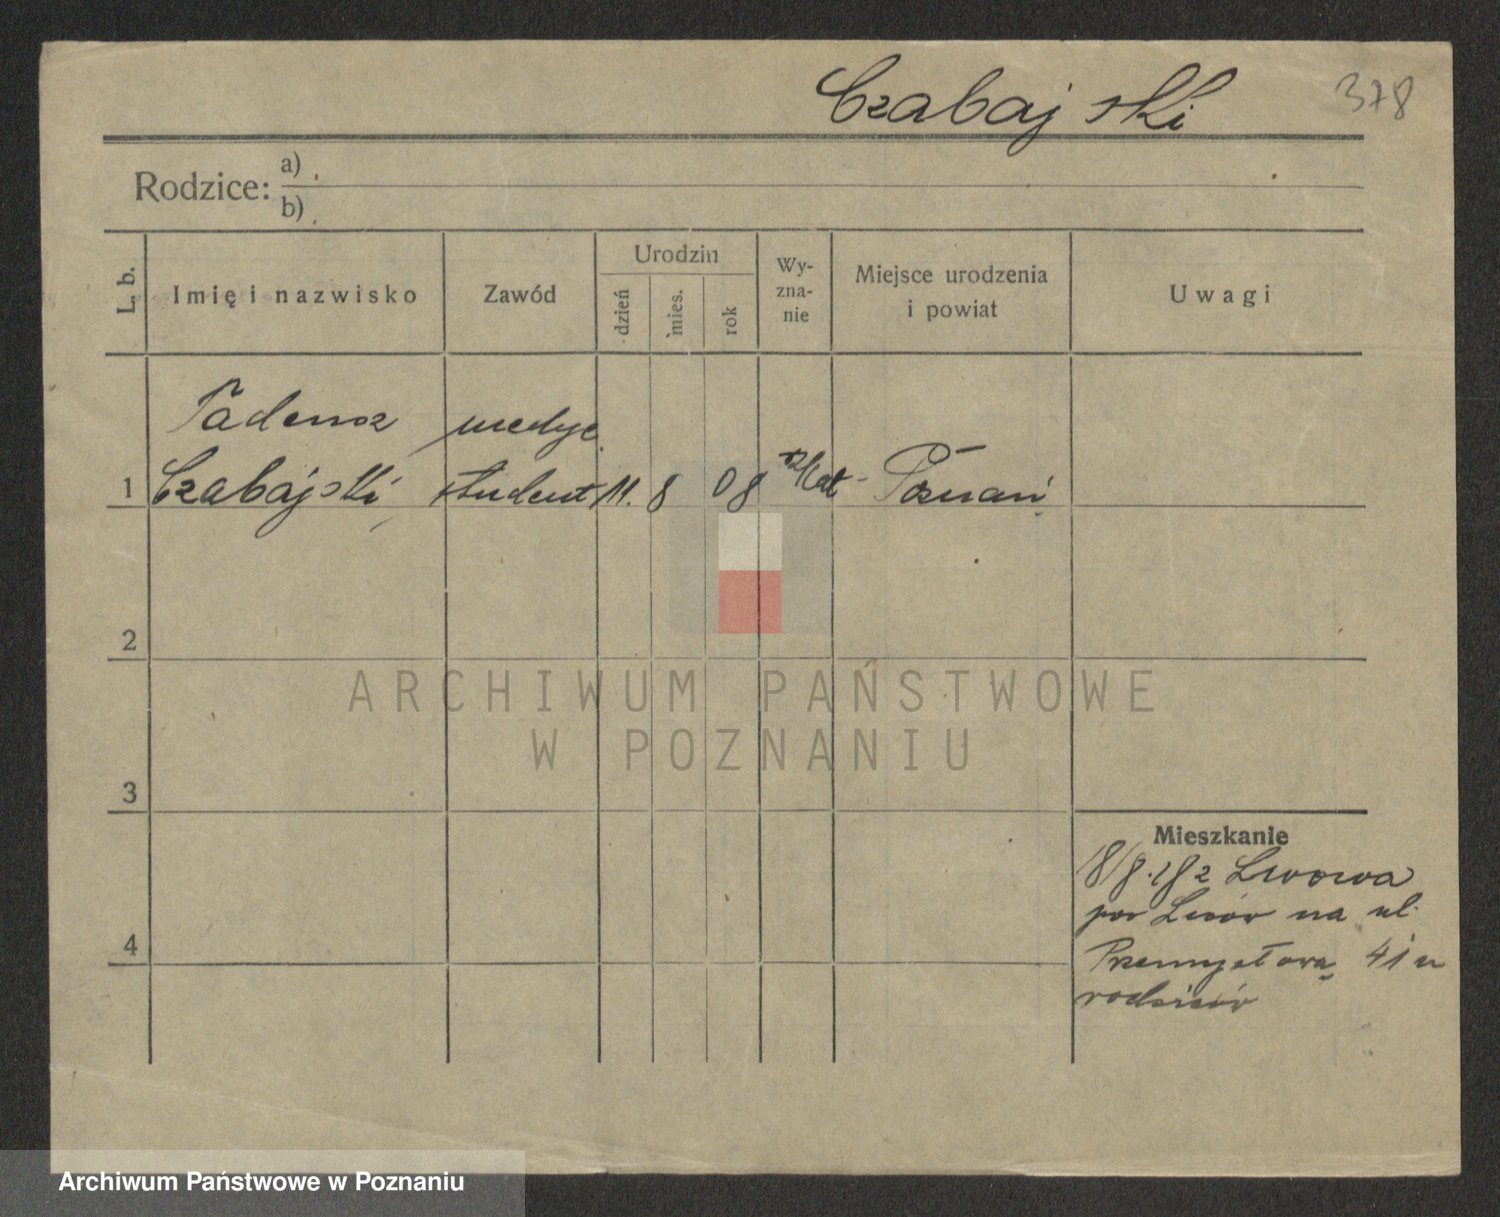 Czabajski 378
Rodzice: a)
b)
L. b.
Imię i nazwisko
Zawód
Urodzin
dzień
mies.
rok
Wy-
zna-
nie
Miejsce urodzenia
i powiat
Uwagi
Tadeusz medyc.
1 Czabajski student 11. 8 08 rz/kat - Poznań
2
ARCHIWUM PAŃSTWOWE
W POZNANIU
3
Mieszkanie
z Lwowa
pow Lwów na ul.
4
Przemysłową 41 u
rodziców
Archiwum Państwowe w Poznaniu